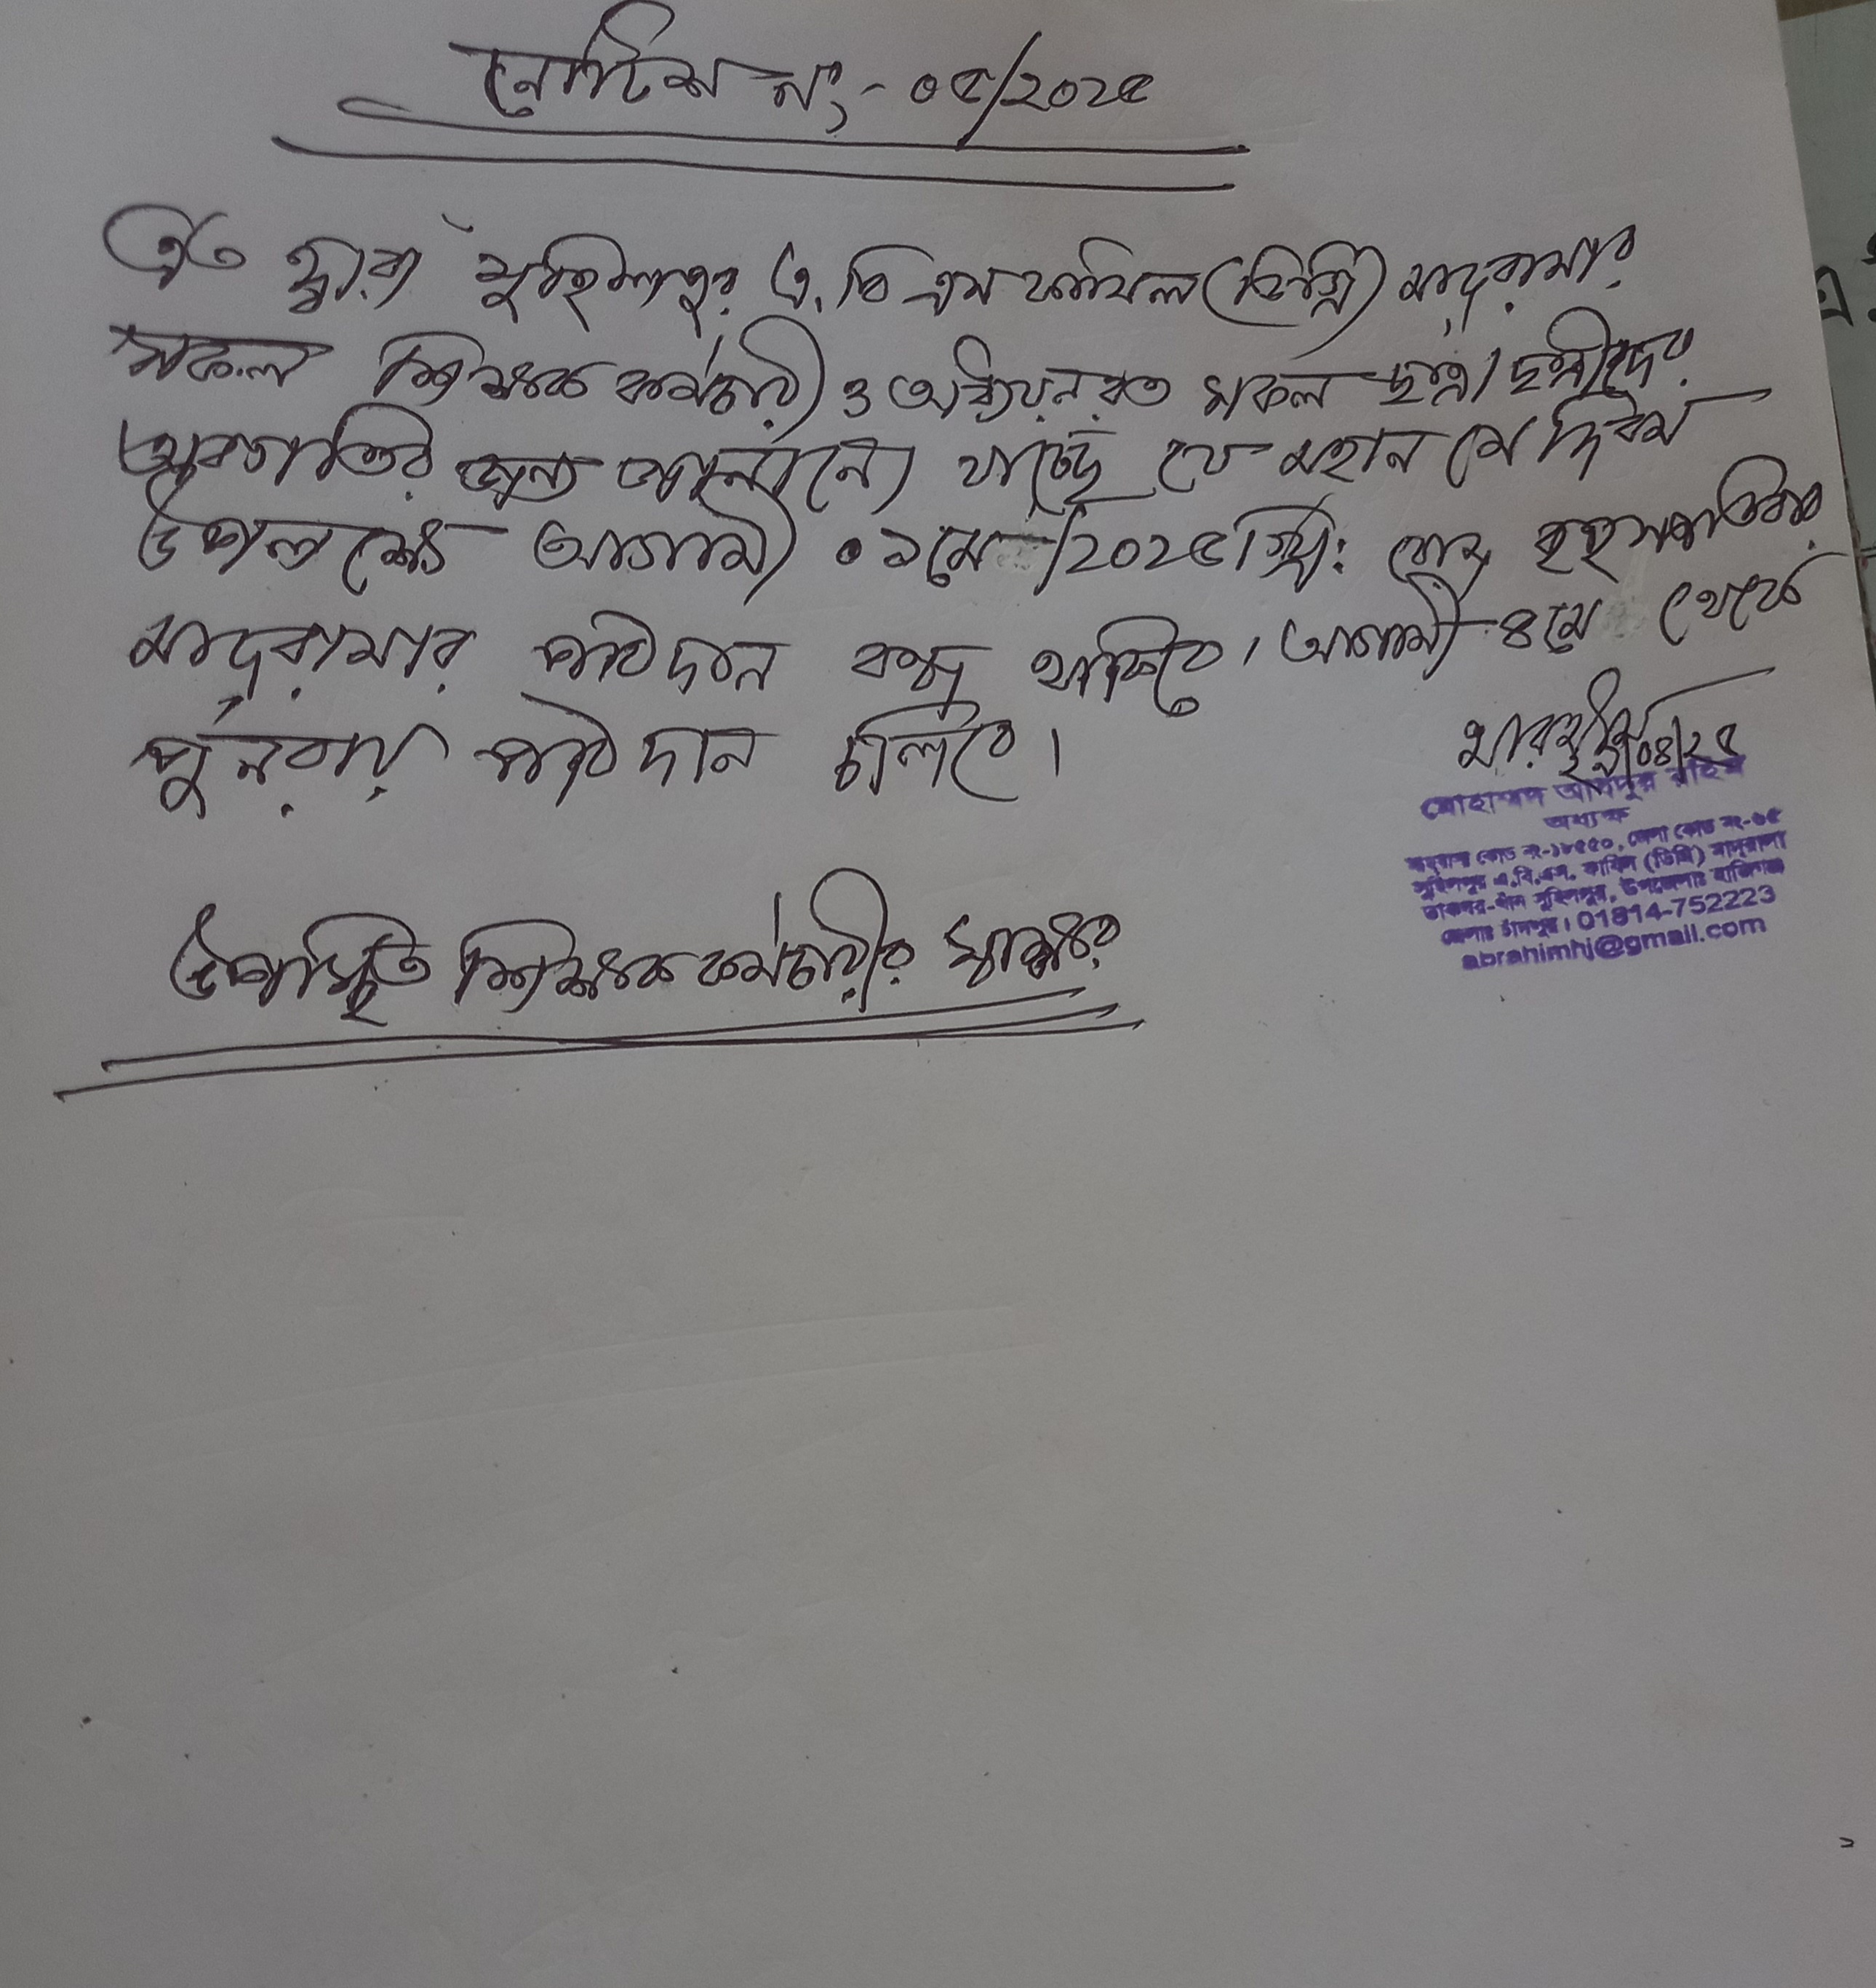 নোটিশ নং-০৫/২০২৫
এত দ্বারা সুহিলপুর এ, বি এম ফাযিল (ডিগ্রি) মাদ্রাসার
সকল শিক্ষক কর্মচারী ও অধ্যয়নরত সকল ছাত্র/ছাত্রীদের
অবগতির জন্য জানানো যাচ্ছে যে মহান মে দিবস
উপলক্ষে আগামী ০১মে/২০২৫খ্রি: রোজ বৃহস্পতিবার
মাদ্রাসার পাঠদান বন্ধ থাকিবে। আগামী ৪মে থেকে
পুনরায় পাঠদান চলিবে।
০৪/২৫
মোহাম্মদ আবদুর রহিম
অধ্যক্ষ
মাদ্রাসা কোড নং-১৮৫৫০, জেলা কোড নং-৬৫
সুহিলপুর এ.বি.এস. ফাযিল (ডিগ্রি) মাদ্রাসা
ডাকঘর-ধাঁন সুহিলপুর, উপজেলাঃ হাজিগঞ্জ
জেলাঃ চাঁদপুর। 01814-752223
abrahimhj@gmail.com
উপস্থিত শিক্ষক কর্মচারীর স্বাক্ষর